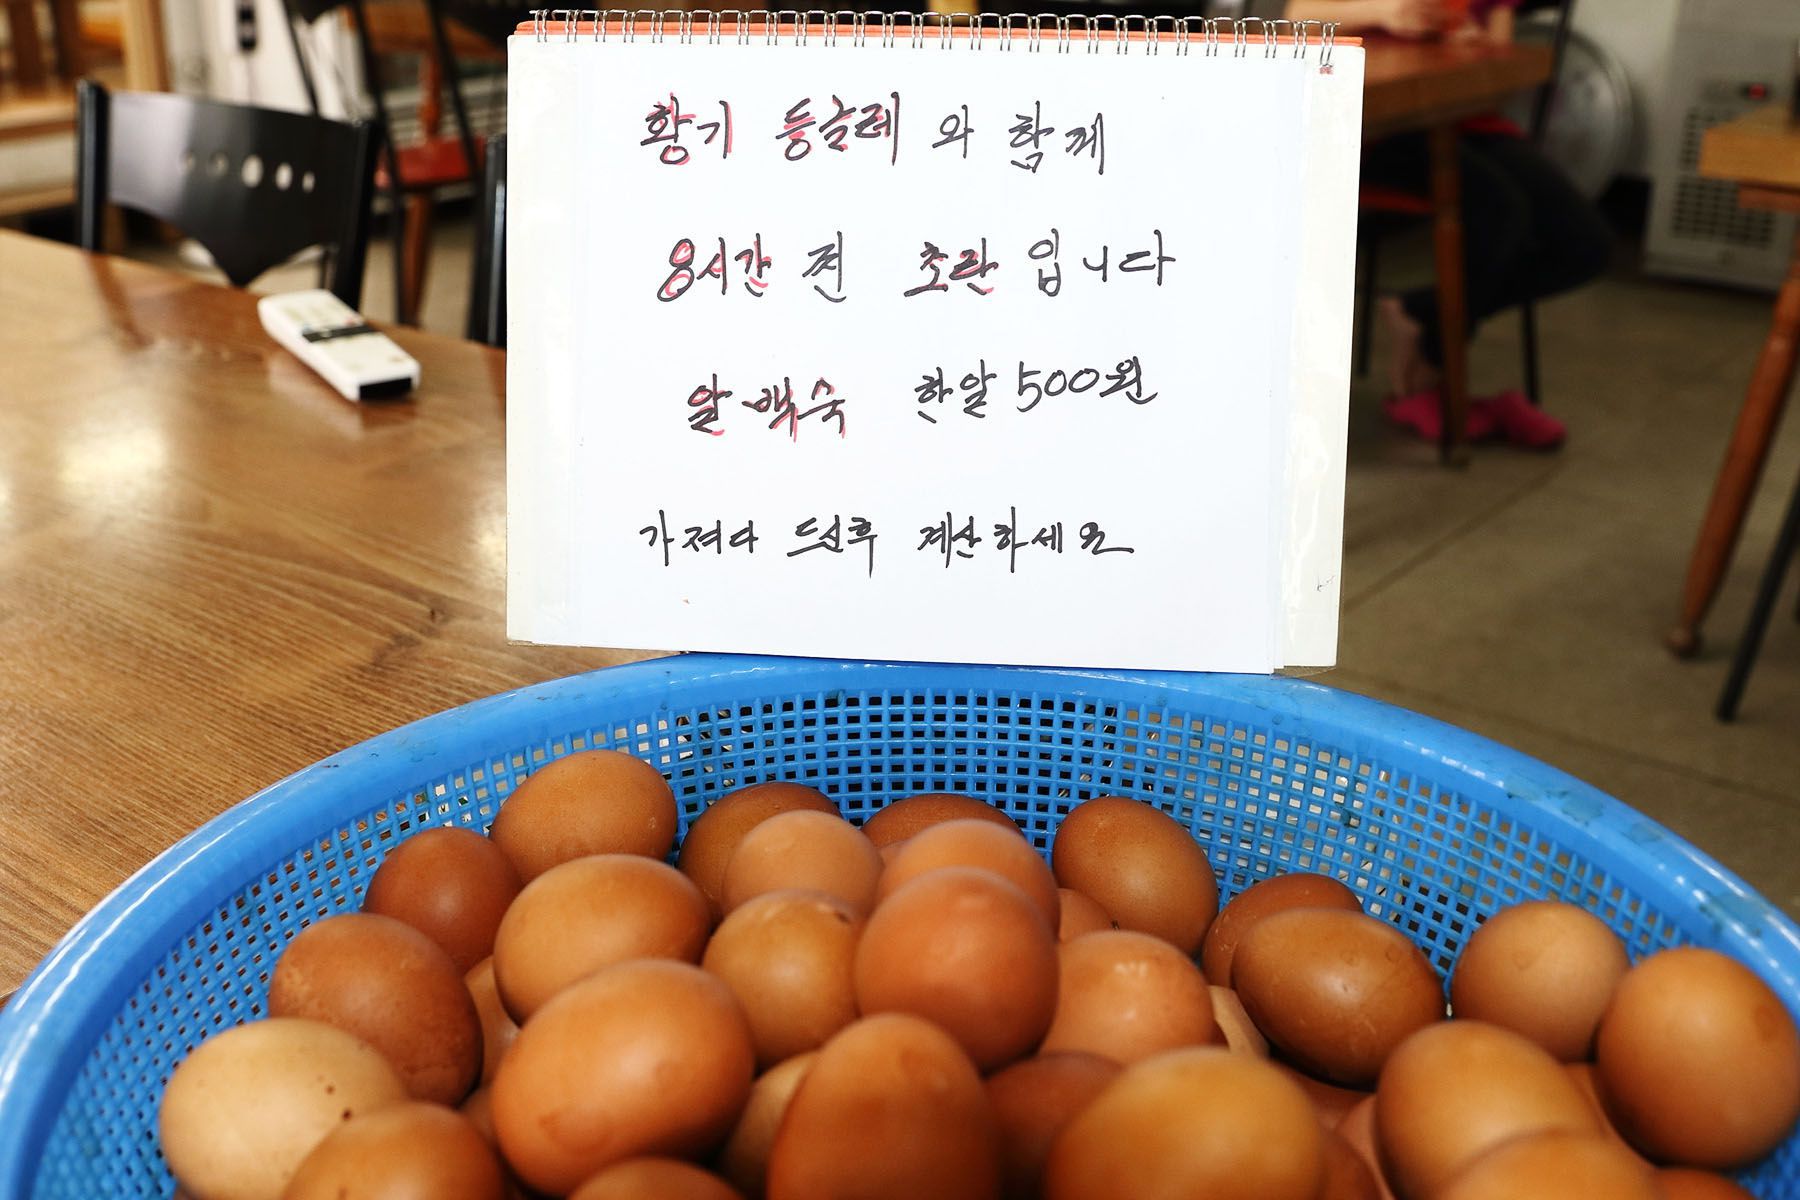 황기 둥글레 와 함께
8시간 전 초란 입니다
알 백숙 한알 500원
가져다 드신후 계산하세요